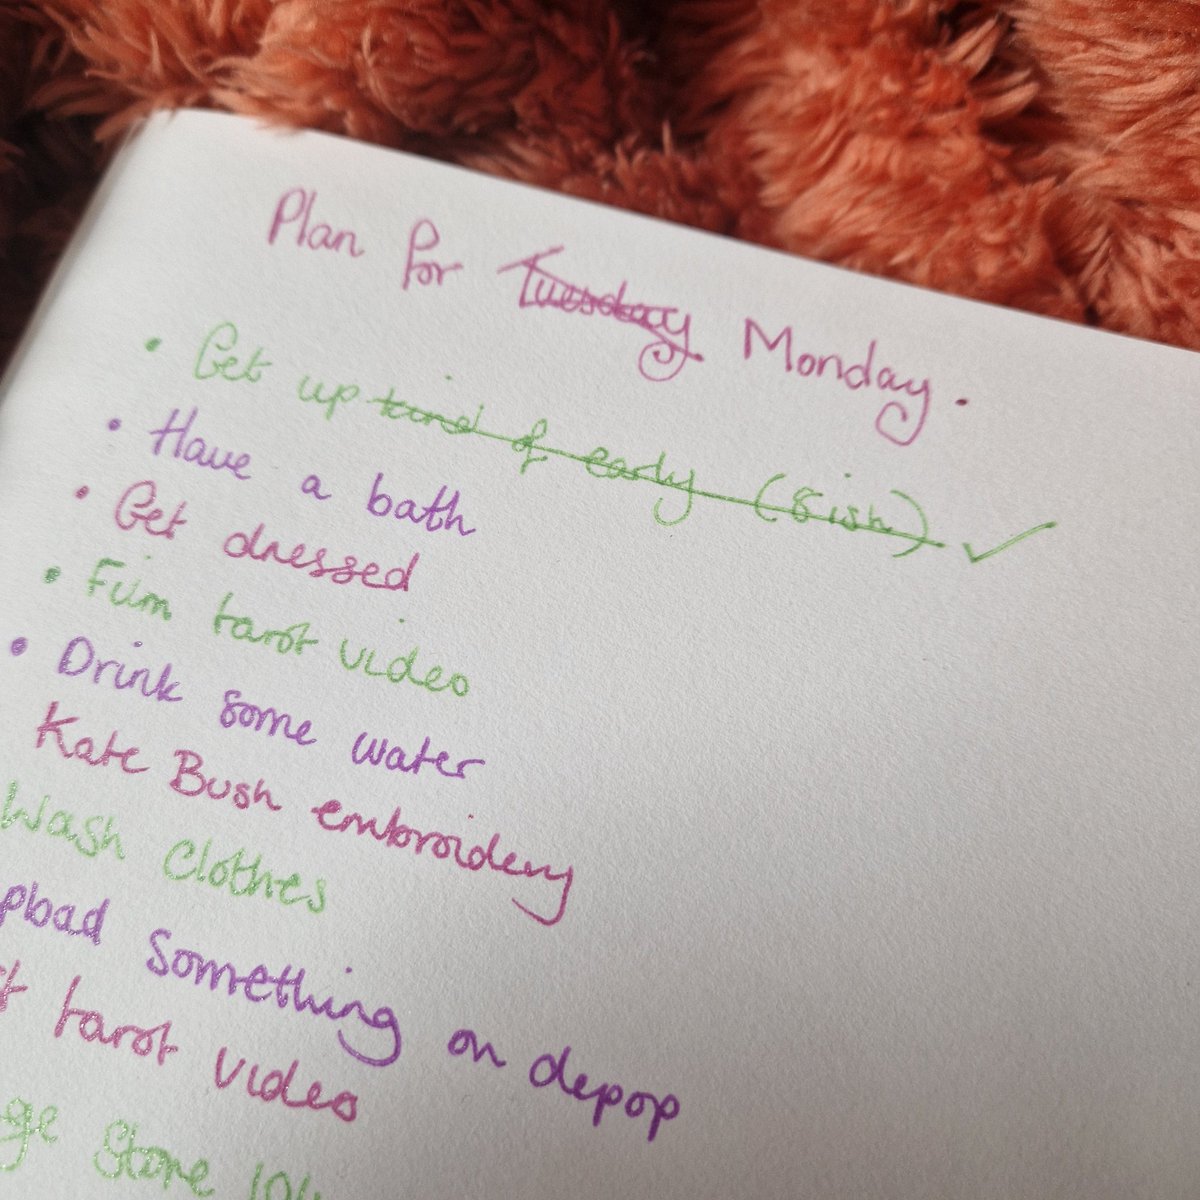 Plan for Tuesday Monday.
• Get up kind of early (8ish) ✓
• Have a bath
• Get dressed
• Film tarot video
• Drink some water
Kate Bush embroidery
Wash clothes
pload something on depop
t tarot video
ge Store